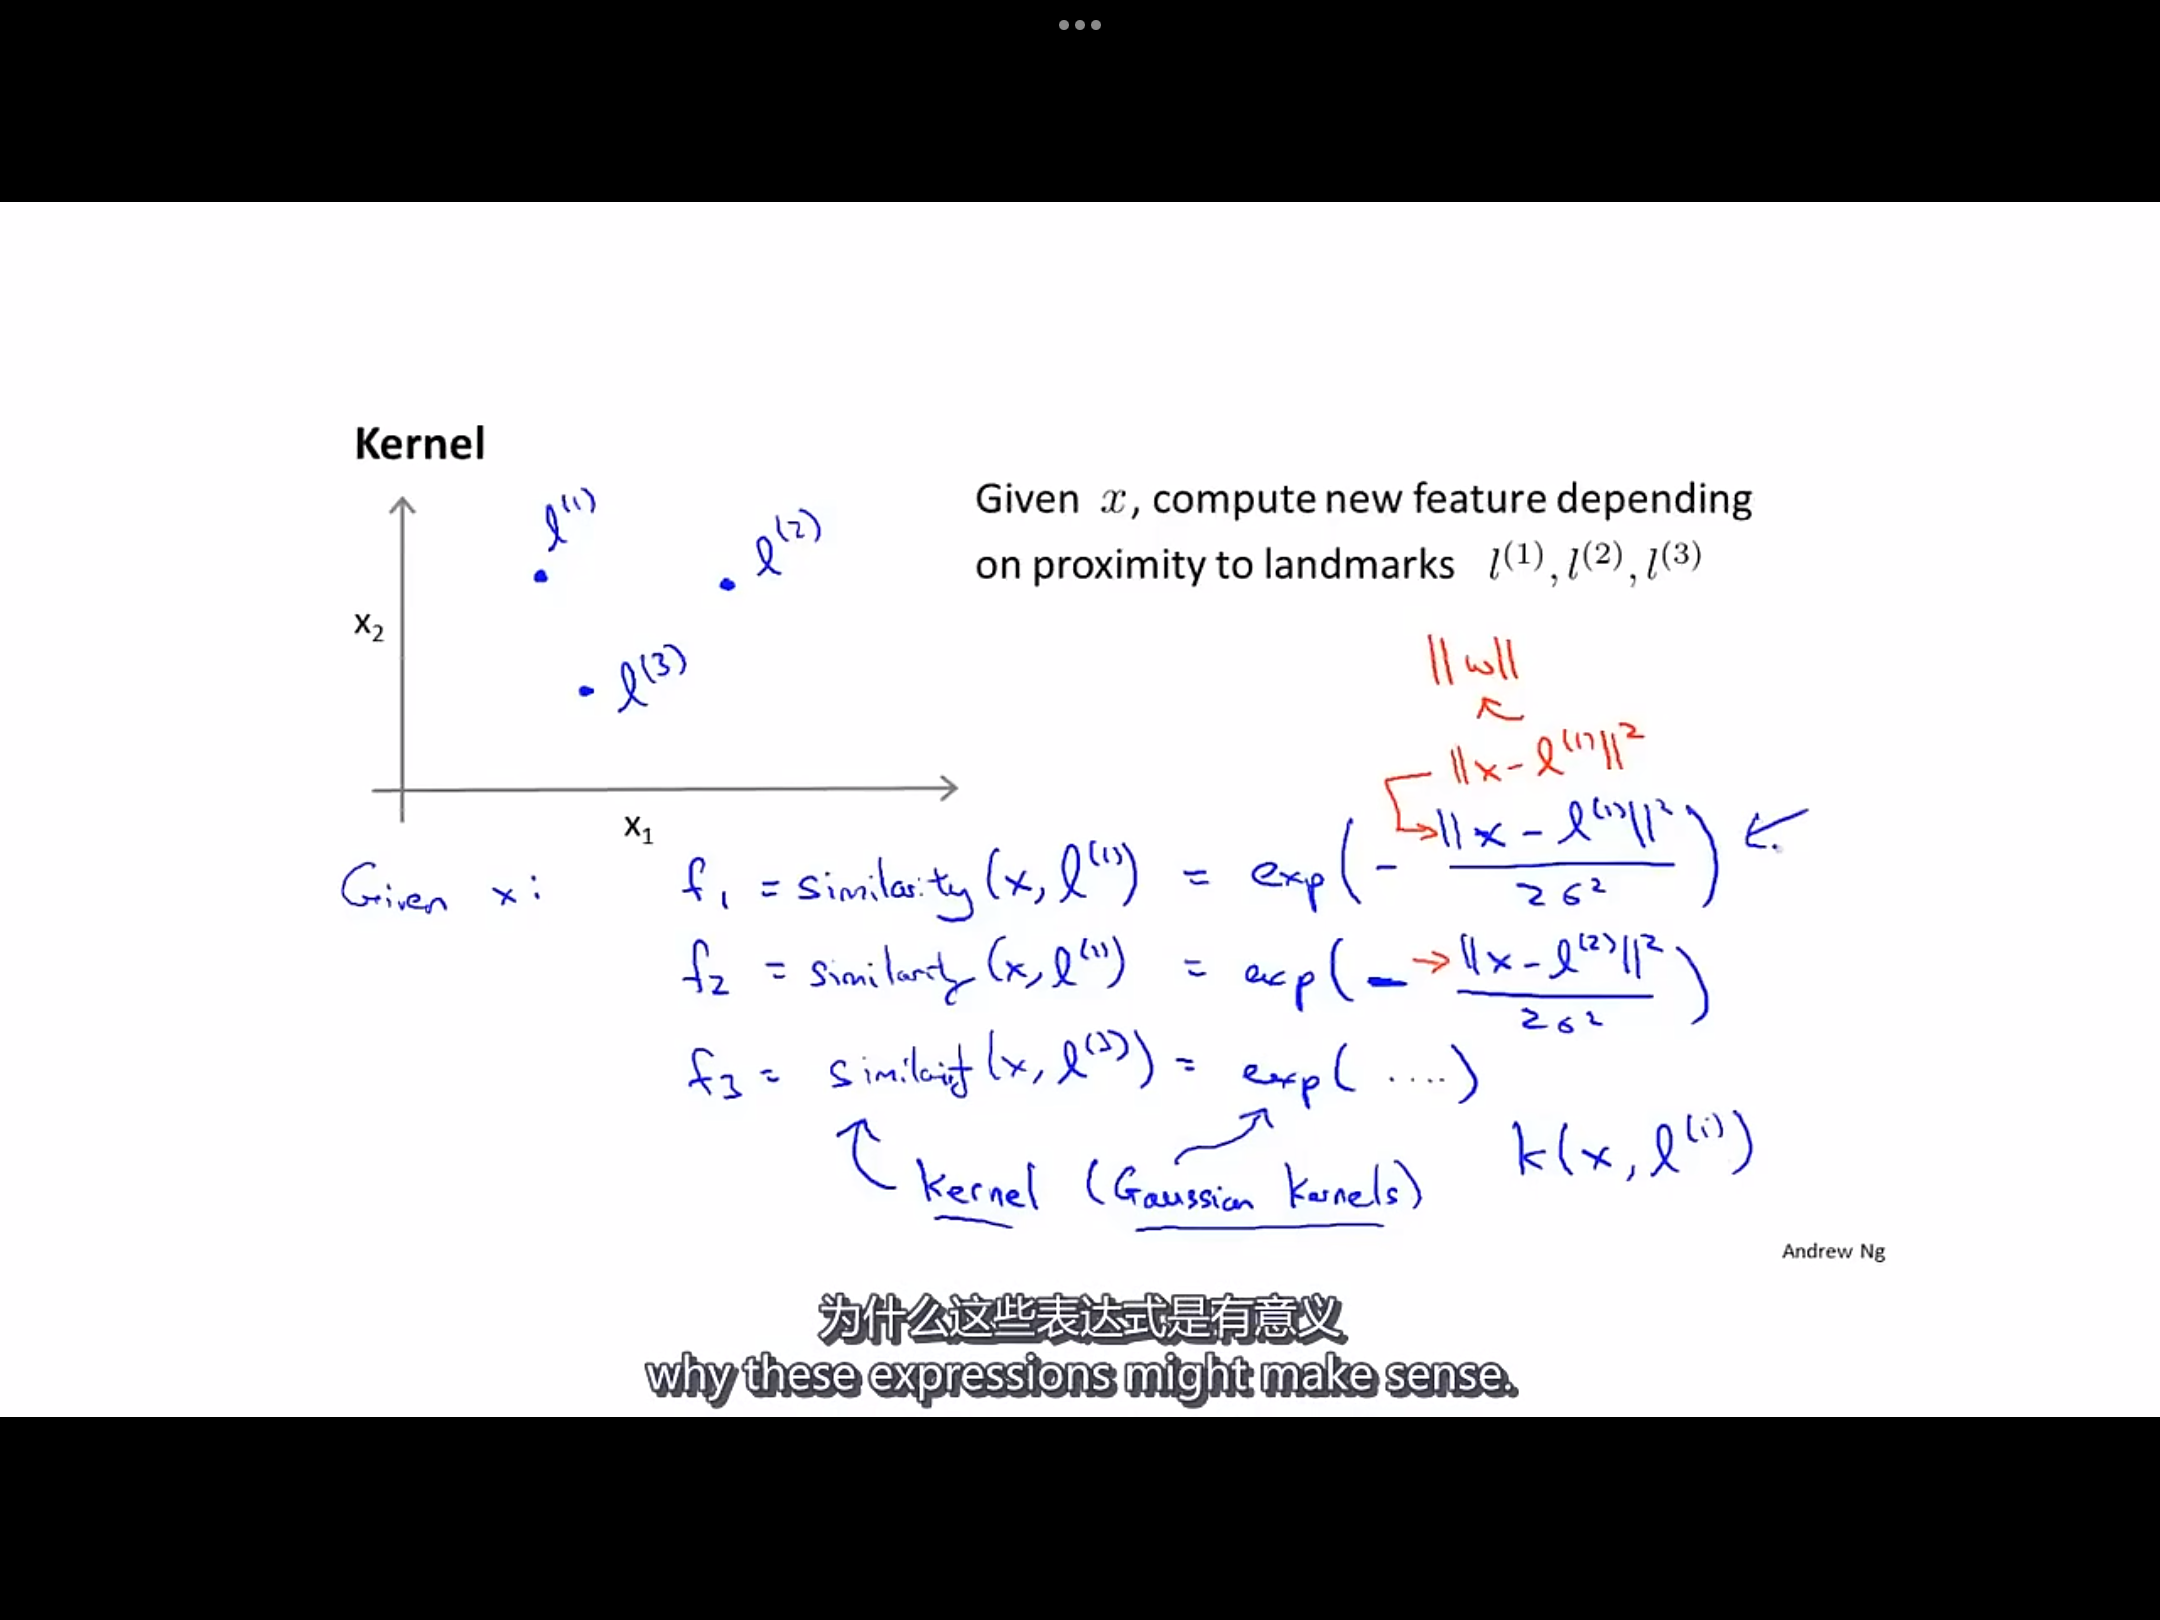 Kernel
l⁽¹⁾
l⁽²⁾
l⁽³⁾
x₂
x₁
Given x, compute new feature depending
on proximity to landmarks l⁽¹⁾, l⁽²⁾, l⁽³⁾
||w||
||x - l⁽¹⁾||²
Given x: f₁ = similarity(x, l⁽¹⁾) = exp(- ||x - l⁽¹⁾||² / 2σ²)
f₂ = similarity(x, l⁽²⁾) = exp(- ||x - l⁽²⁾||² / 2σ²)
f₃ = similarity(x, l⁽³⁾) = exp( .... )
kernel (Gaussian kernels)
k(x, l⁽ⁱ⁾)
Andrew Ng
为什么这些表达式是有意义
why these expressions might make sense.